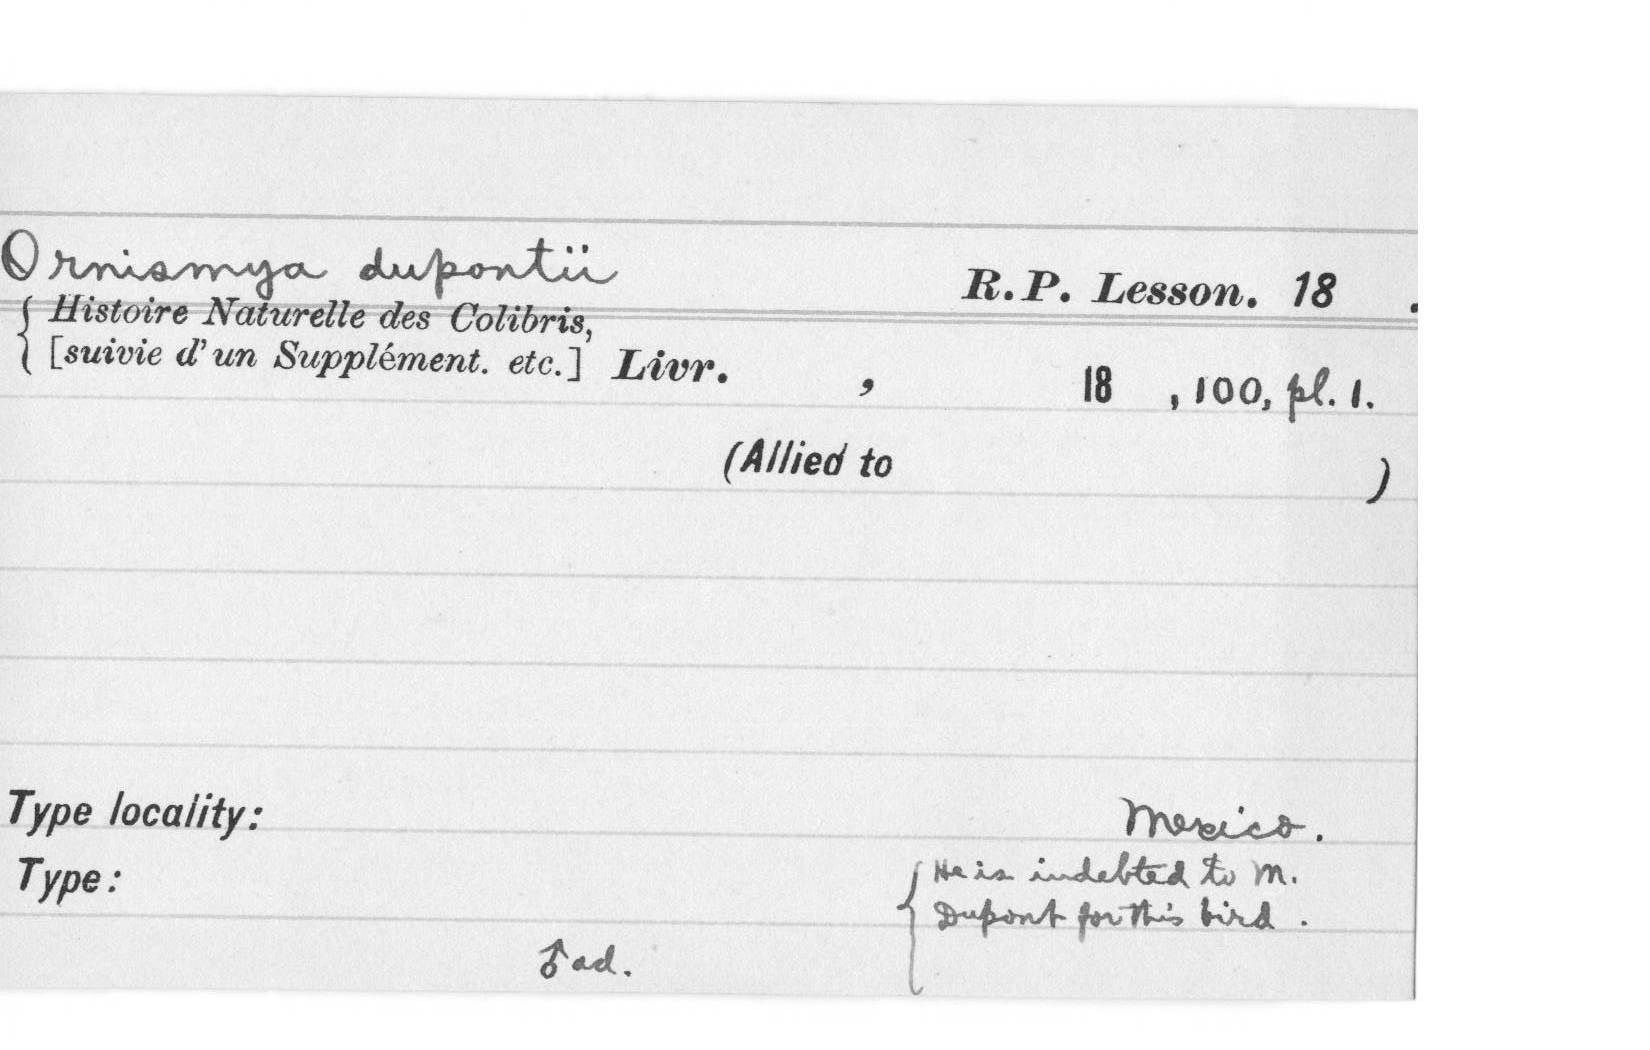 Ornismya dupontii R.P. Lesson. 18 .
{ Histoire Naturelle des Colibris,
[suivie d'un Supplément. etc.] Livr. , 18 , 100, pl. 1.
(Allied to )
Type locality: Mexico.
Type: { He is indebted to M.
Dupont for this bird .
♂ ad.